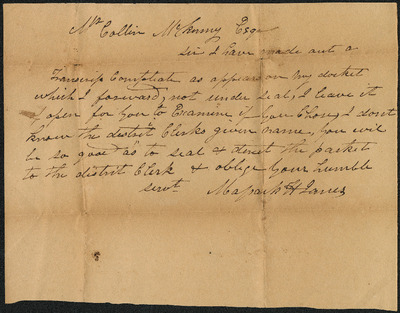 Mr Collin McKinny Esqr
Sir I have made out a
Transcrip Compleat as appears on my docket
which I forward, not under seal, I leave it
open for you to Examine if you Chose, I dont
know the district Clerks given name, you will
be so good as to seal & direct the packet
to the district Clerk & oblige your humble
servt